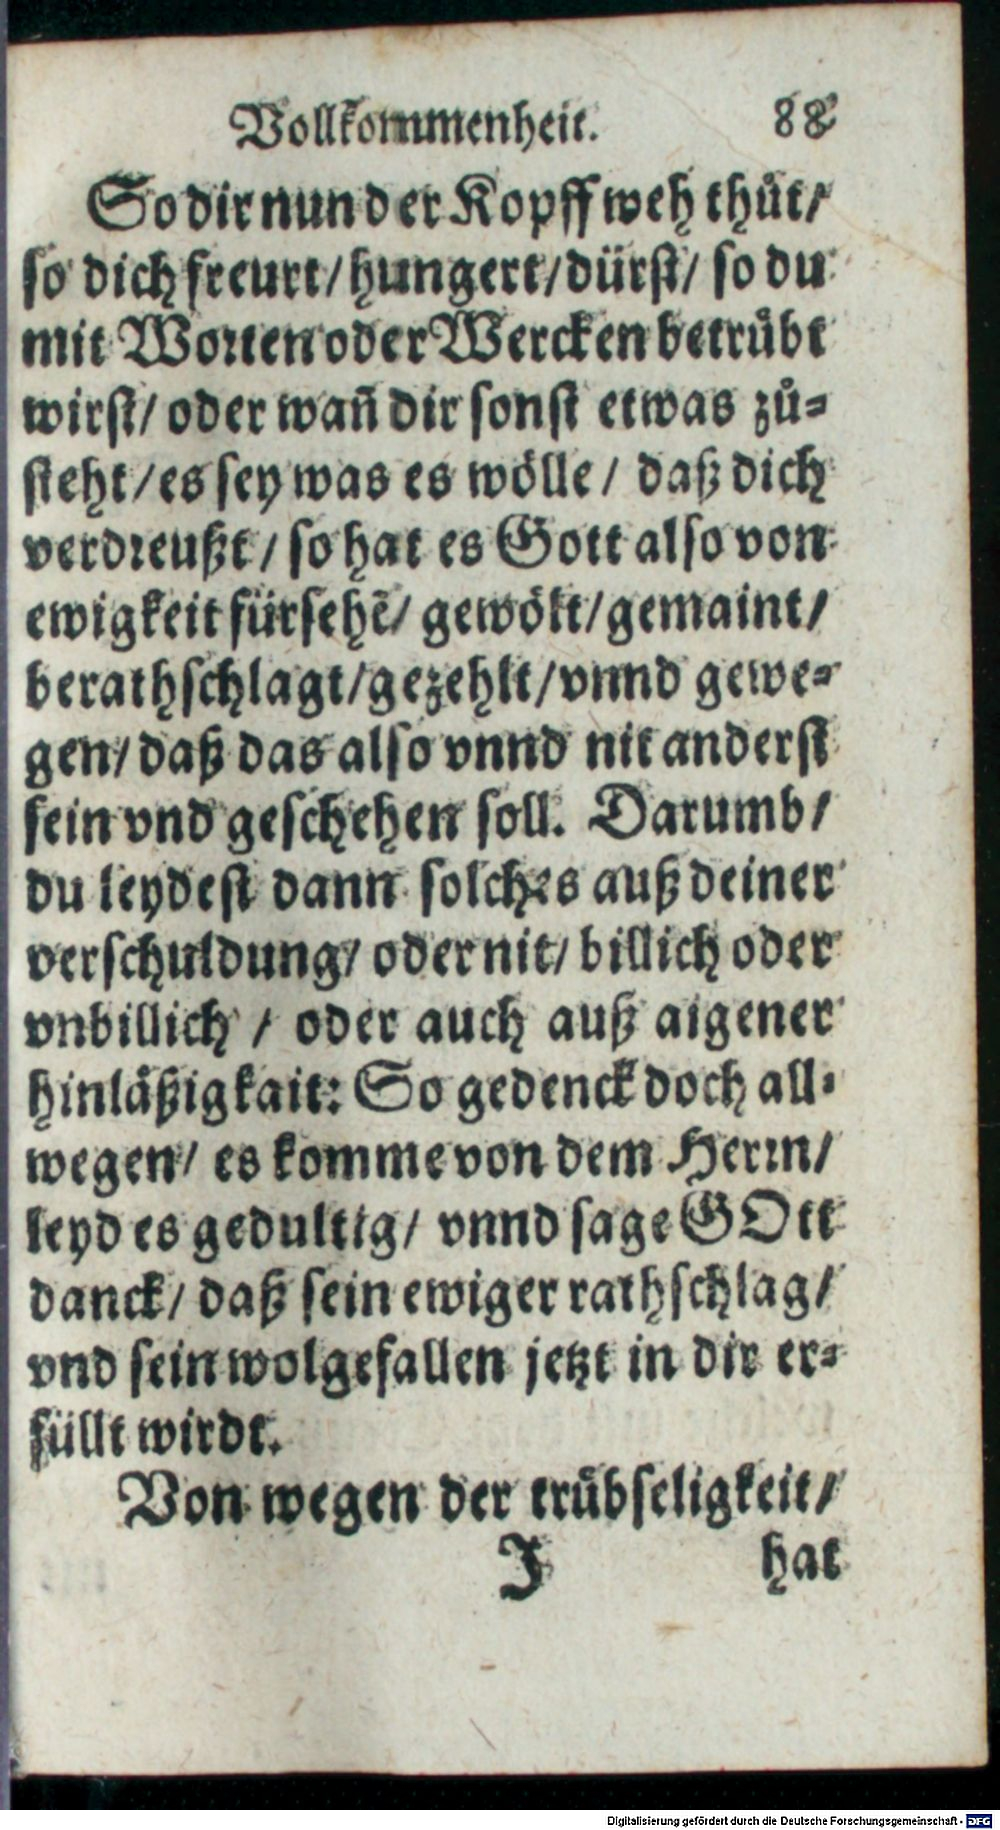 Vollkommenheit. 88
So dir nun der Kopff weh thůt/
so dich freurt/hungert/dürst/ so du
mit Worten oder Wercken betrübt
wirst/ oder wañ dir sonst etwas zů-
steht/es sey was es wölle/ daß dich
verdreußt/ so hat es Gott also von
ewigkeit fürsehẽ/ gewölt/gemaint/
berathschlagt/gezehlt/vnnd gewe-
gen/ daß das also vnnd nit anderst
sein vnd geschehen soll. Darumb/
du leydest dann solches auß deiner
verschuldung/ oder nit/ billich oder
vnbillich / oder auch auß aigener
hinläßigkait: So gedenck doch all-
wegen/ es komme von dem Herrn/
leyd es gedultig/ vnnd sage GOtt
danck/ daß sein ewiger rathschlag/
vnd sein wolgefallen jetzt in dir er-
füllt wirdt.
Von wegen der trübseligkeit/
J hat
Digitalisierung gefördert durch die Deutsche Forschungsgemeinschaft - DFG